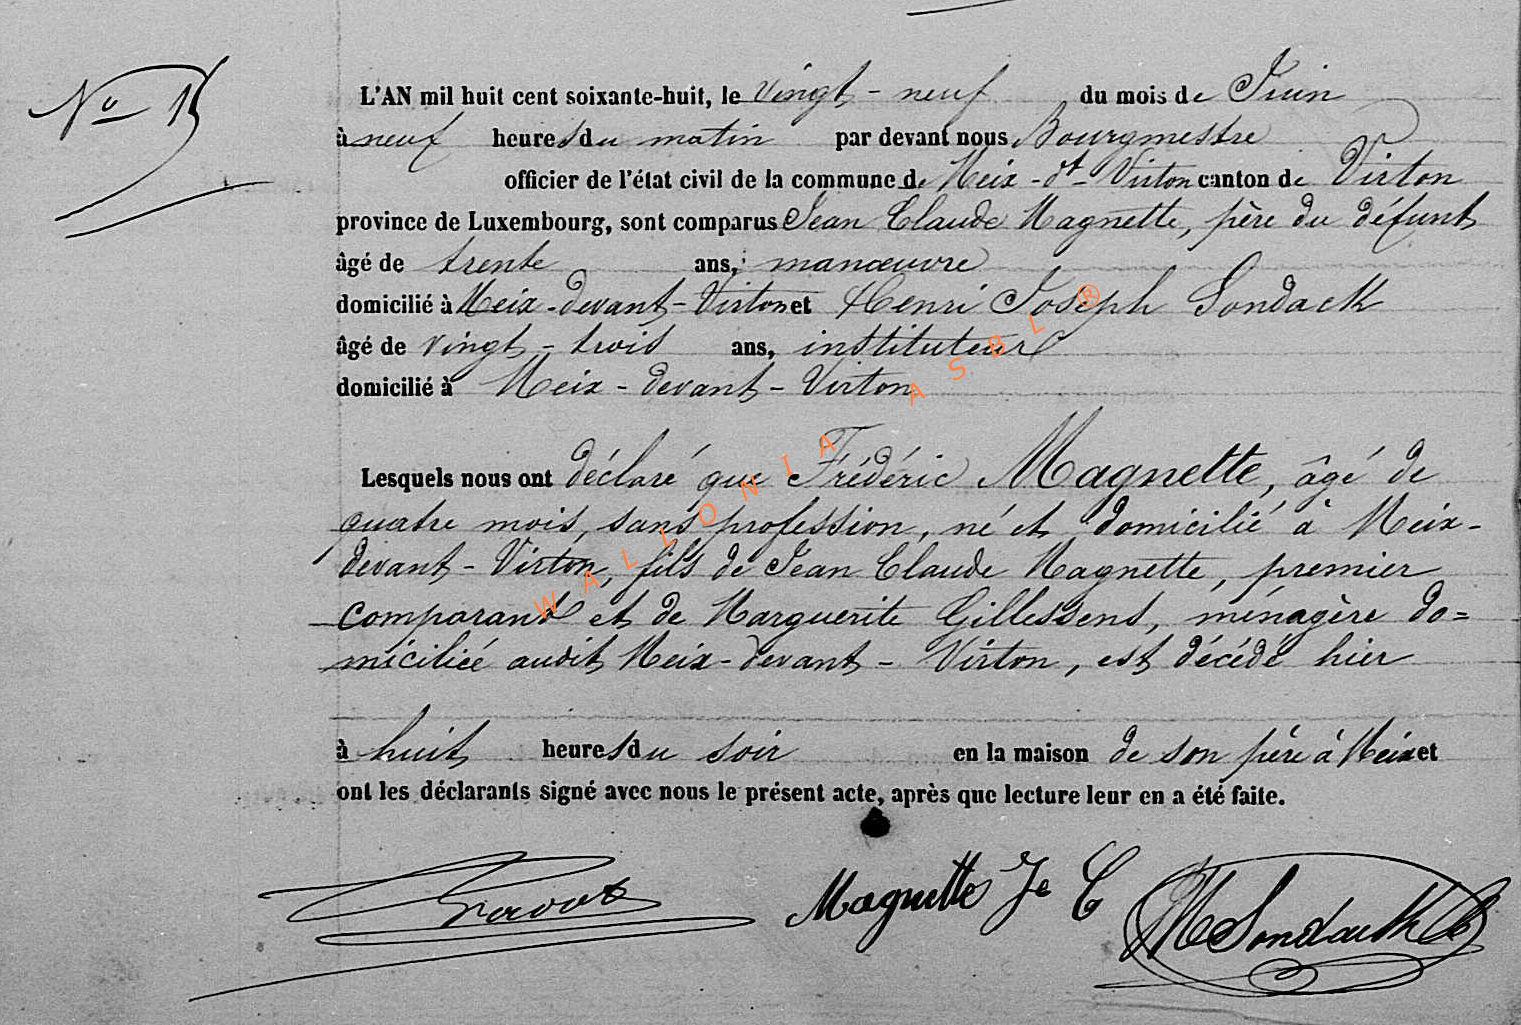 No 15
L'AN mil huit cent soixante-huit, le vingt-neuf du mois de Juin
à neuf heures du matin par devant nous Bourgmestre
officier de l'état civil de la commune de Meix-dt-Virton canton de Virton
province de Luxembourg, sont comparus Jean Claude Magnette, père du défunt
âgé de trente ans, manœuvre
domicilié à Meix-devant-Virton et Henri Joseph Sondack
âgé de vingt-trois ans, instituteur
domicilié à Meix-devant-Virton
Lesquels nous ont déclaré que Frédéric Magnette, âgé de
quatre mois, sans profession, né et domicilié à Meix-
devant-Virton, fils de Jean Claude Magnette, premier
comparant et de Marguerite Gillessens, ménagère do=
miciliée audit Meix-devant-Virton, est décédé hier
à huit heures du soir en la maison de son père à Meix et
ont les déclarants signé avec nous le présent acte, après que lecture leur en a été faite.
Magnette Je C
Sondack
WALLONIA ASBL ®